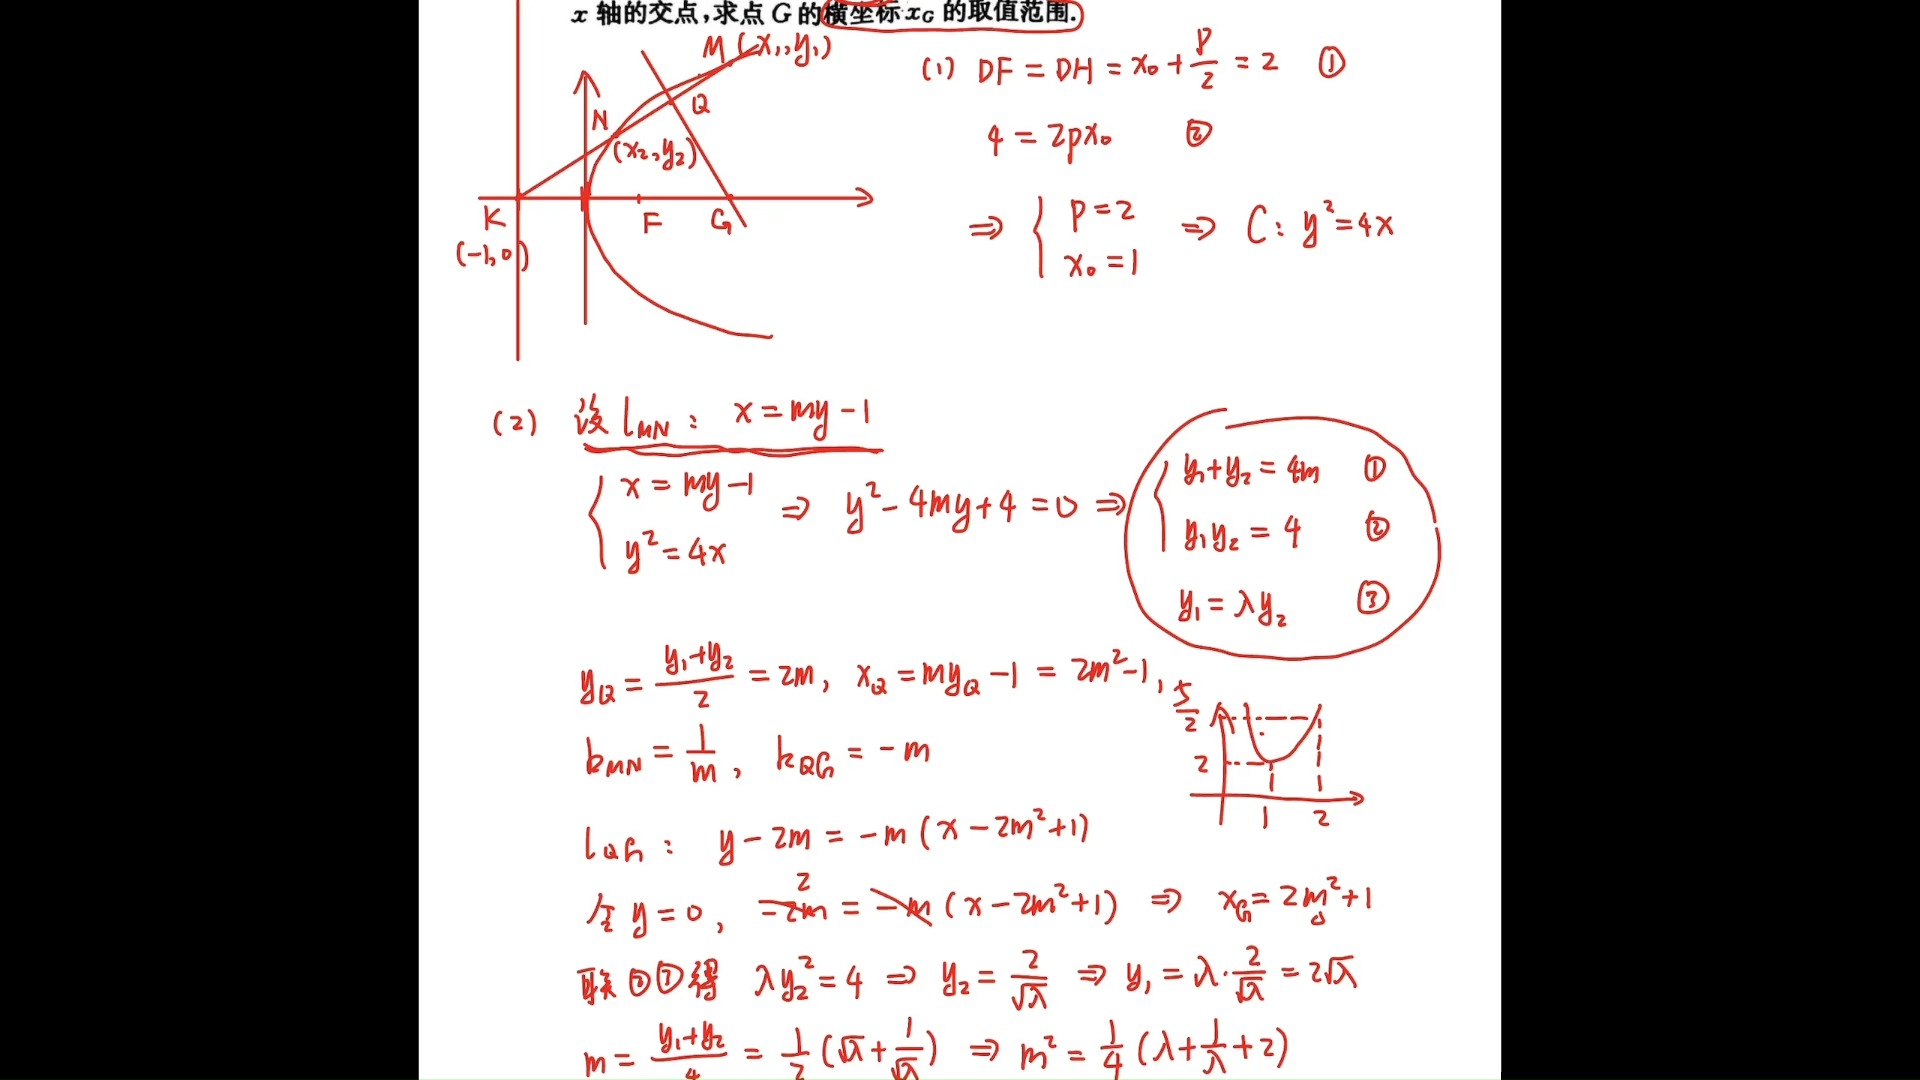 x 轴的交点,求点 G 的横坐标 x_G 的取值范围.
M(x₁,y₁)
Q
N
(x₂,y₂)
K
F
G
(-1,0)
(1) DF = DH = x₀ + p/2 = 2 ①
4 = 2px₀ ②
⇒ { p = 2
x₀ = 1
⇒ C: y² = 4x
(2) 设 l_MN : x = my - 1
{ x = my - 1
y² = 4x
⇒ y² - 4my + 4 = 0 ⇒
{ y₁ + y₂ = 4m ①
y₁y₂ = 4 ②
y₁ = λy₂ ③
y_Q = (y₁+y₂)/2 = 2m, x_Q = my_Q - 1 = 2m² - 1,
5/2
2
1 2
k_MN = 1/m, k_QG = -m
l_QG : y - 2m = -m(x - 2m² + 1)
2
令 y = 0, -2m = -m(x - 2m² + 1) ⇒ x_G = 2m² + 1
联②③得 λy₂² = 4 ⇒ y₂ = 2/√λ ⇒ y₁ = λ·2/√λ = 2√λ
m = (y₁+y₂)/4 = 1/2(√λ + 1/√λ) ⇒ m² = 1/4(λ + 1/λ + 2)